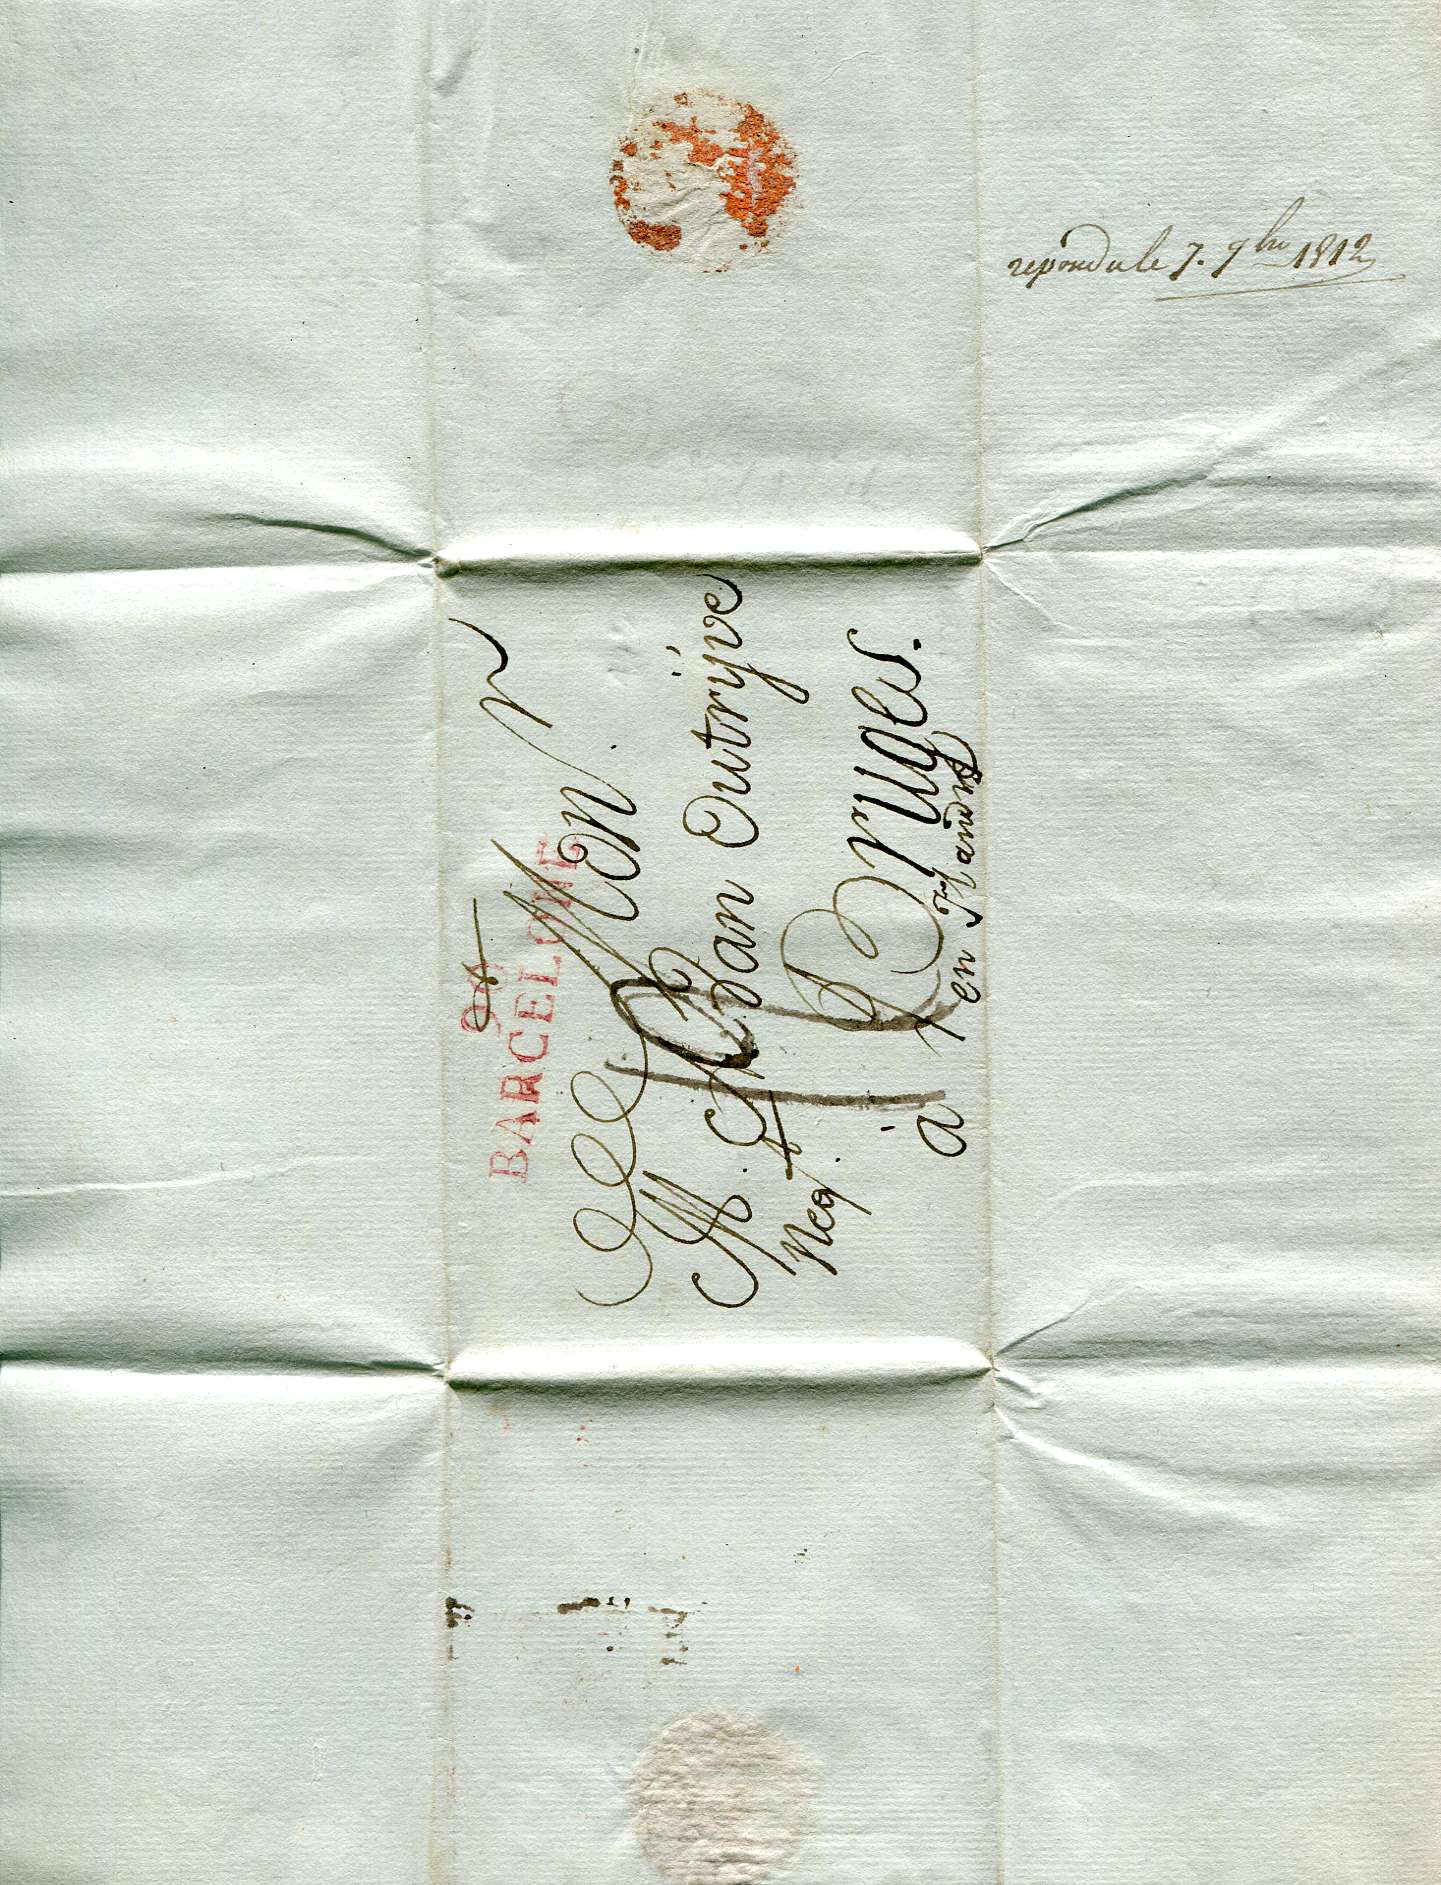 repondu le 7. 9bre 1812
96
BARCELONE
Monr
M. Van Outrÿve
Negt.
à Bruges.
en Flandre